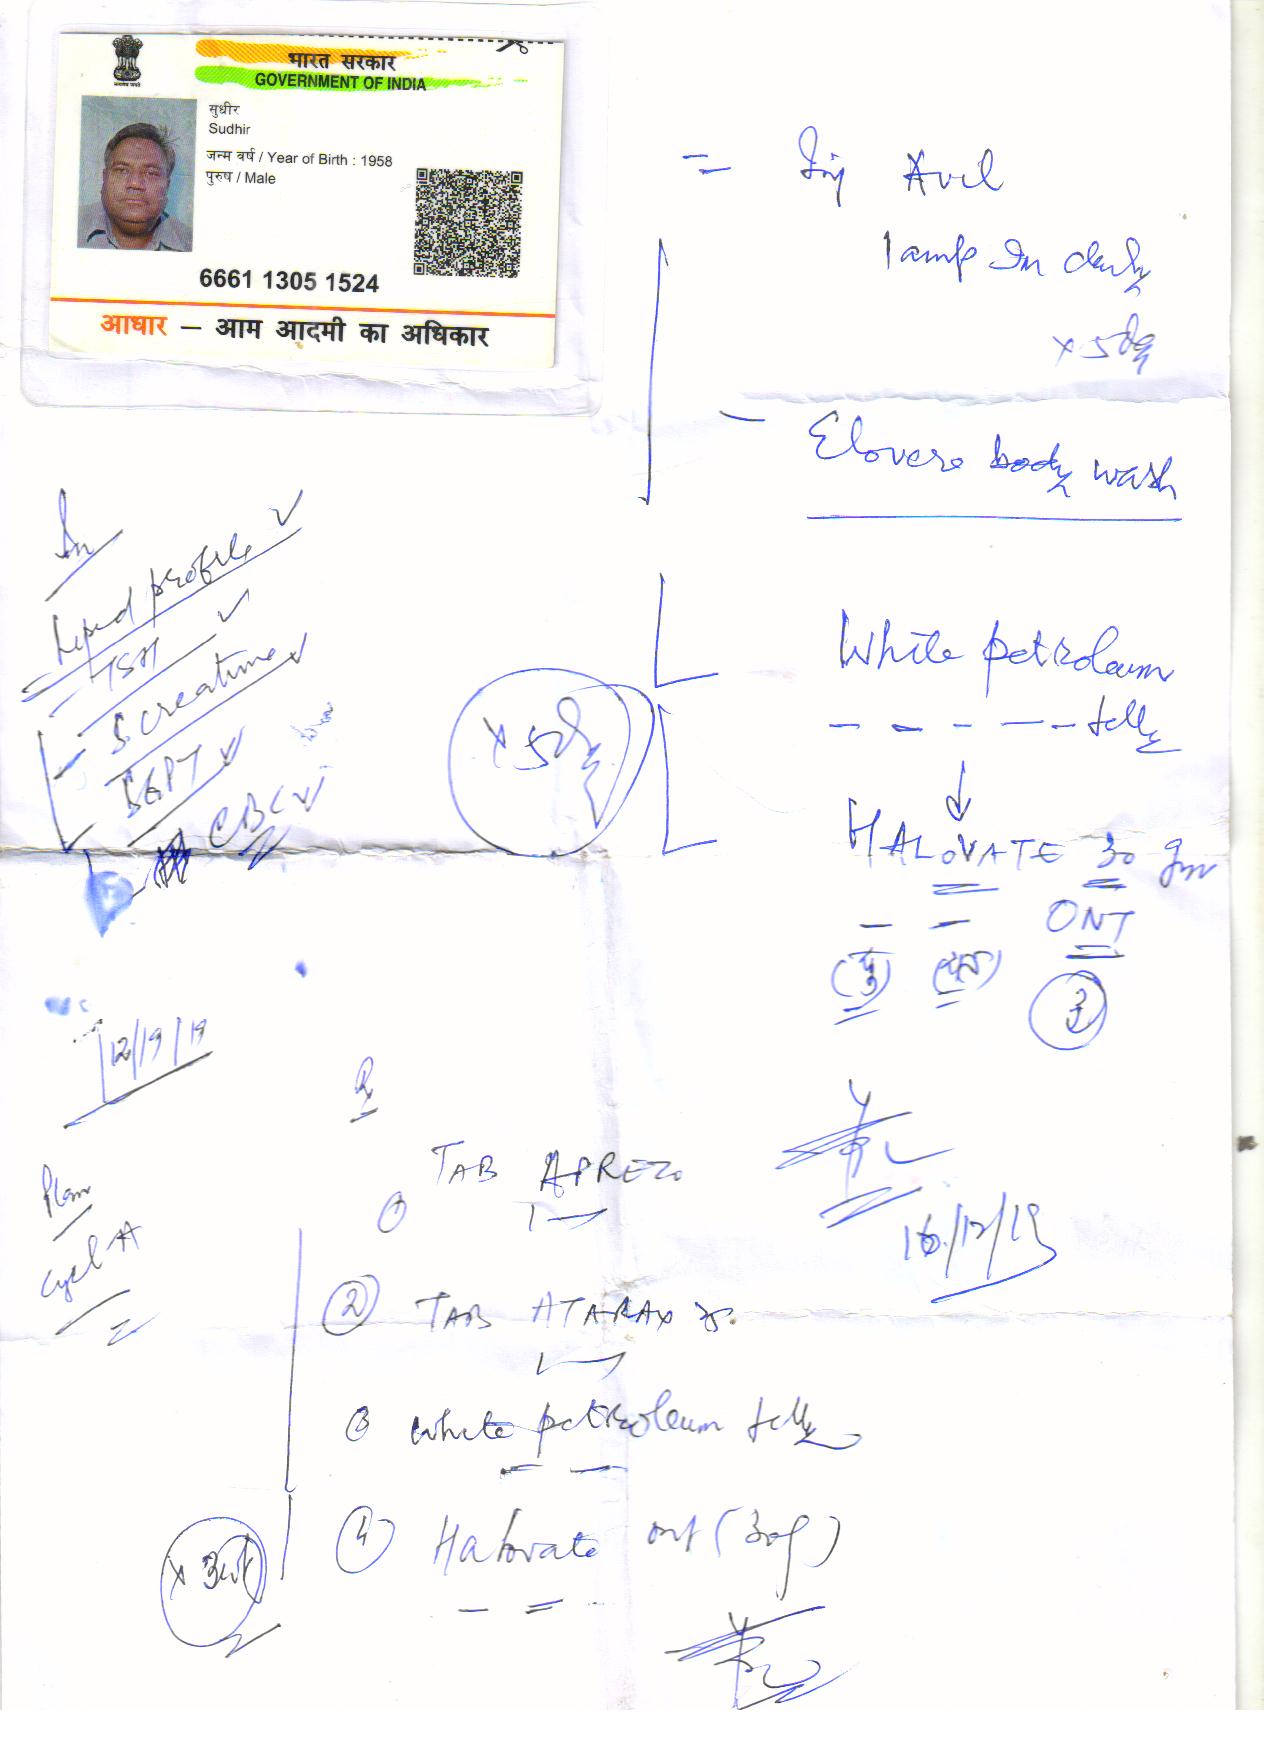 भारत सरकार
GOVERNMENT OF INDIA
सुधीर
Sudhir
जन्म वर्ष / Year of Birth : 1958
पुरुष / Male
6661 1305 1524
आधार – आम आदमी का अधिकार
= Inj Avil
1 amp Im daily
x 5 day
- Elovera body wash
Lipid profile ✓
- TSH ✓
- S. creatinine ✓
SGPT ✓
CBC ✓
x 5 day
White petroleum
- - - - - Jelly
↓
HALOVATE 30 gm
- - ONT
12/19/19
R
① TAB APREZO
② TAB ATARAX
③ White petroleum Jelly
④ Halovate ont (30g)
16/12/19
Plan
Cycl A